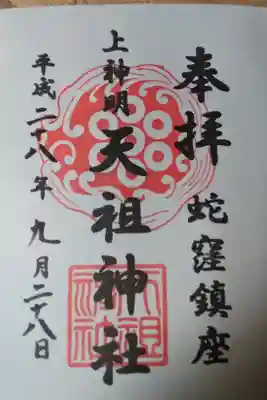 奉拝 蛇窪鎮座
上神明
天祖神社
平成二十八年九月二十八日
天祖神社